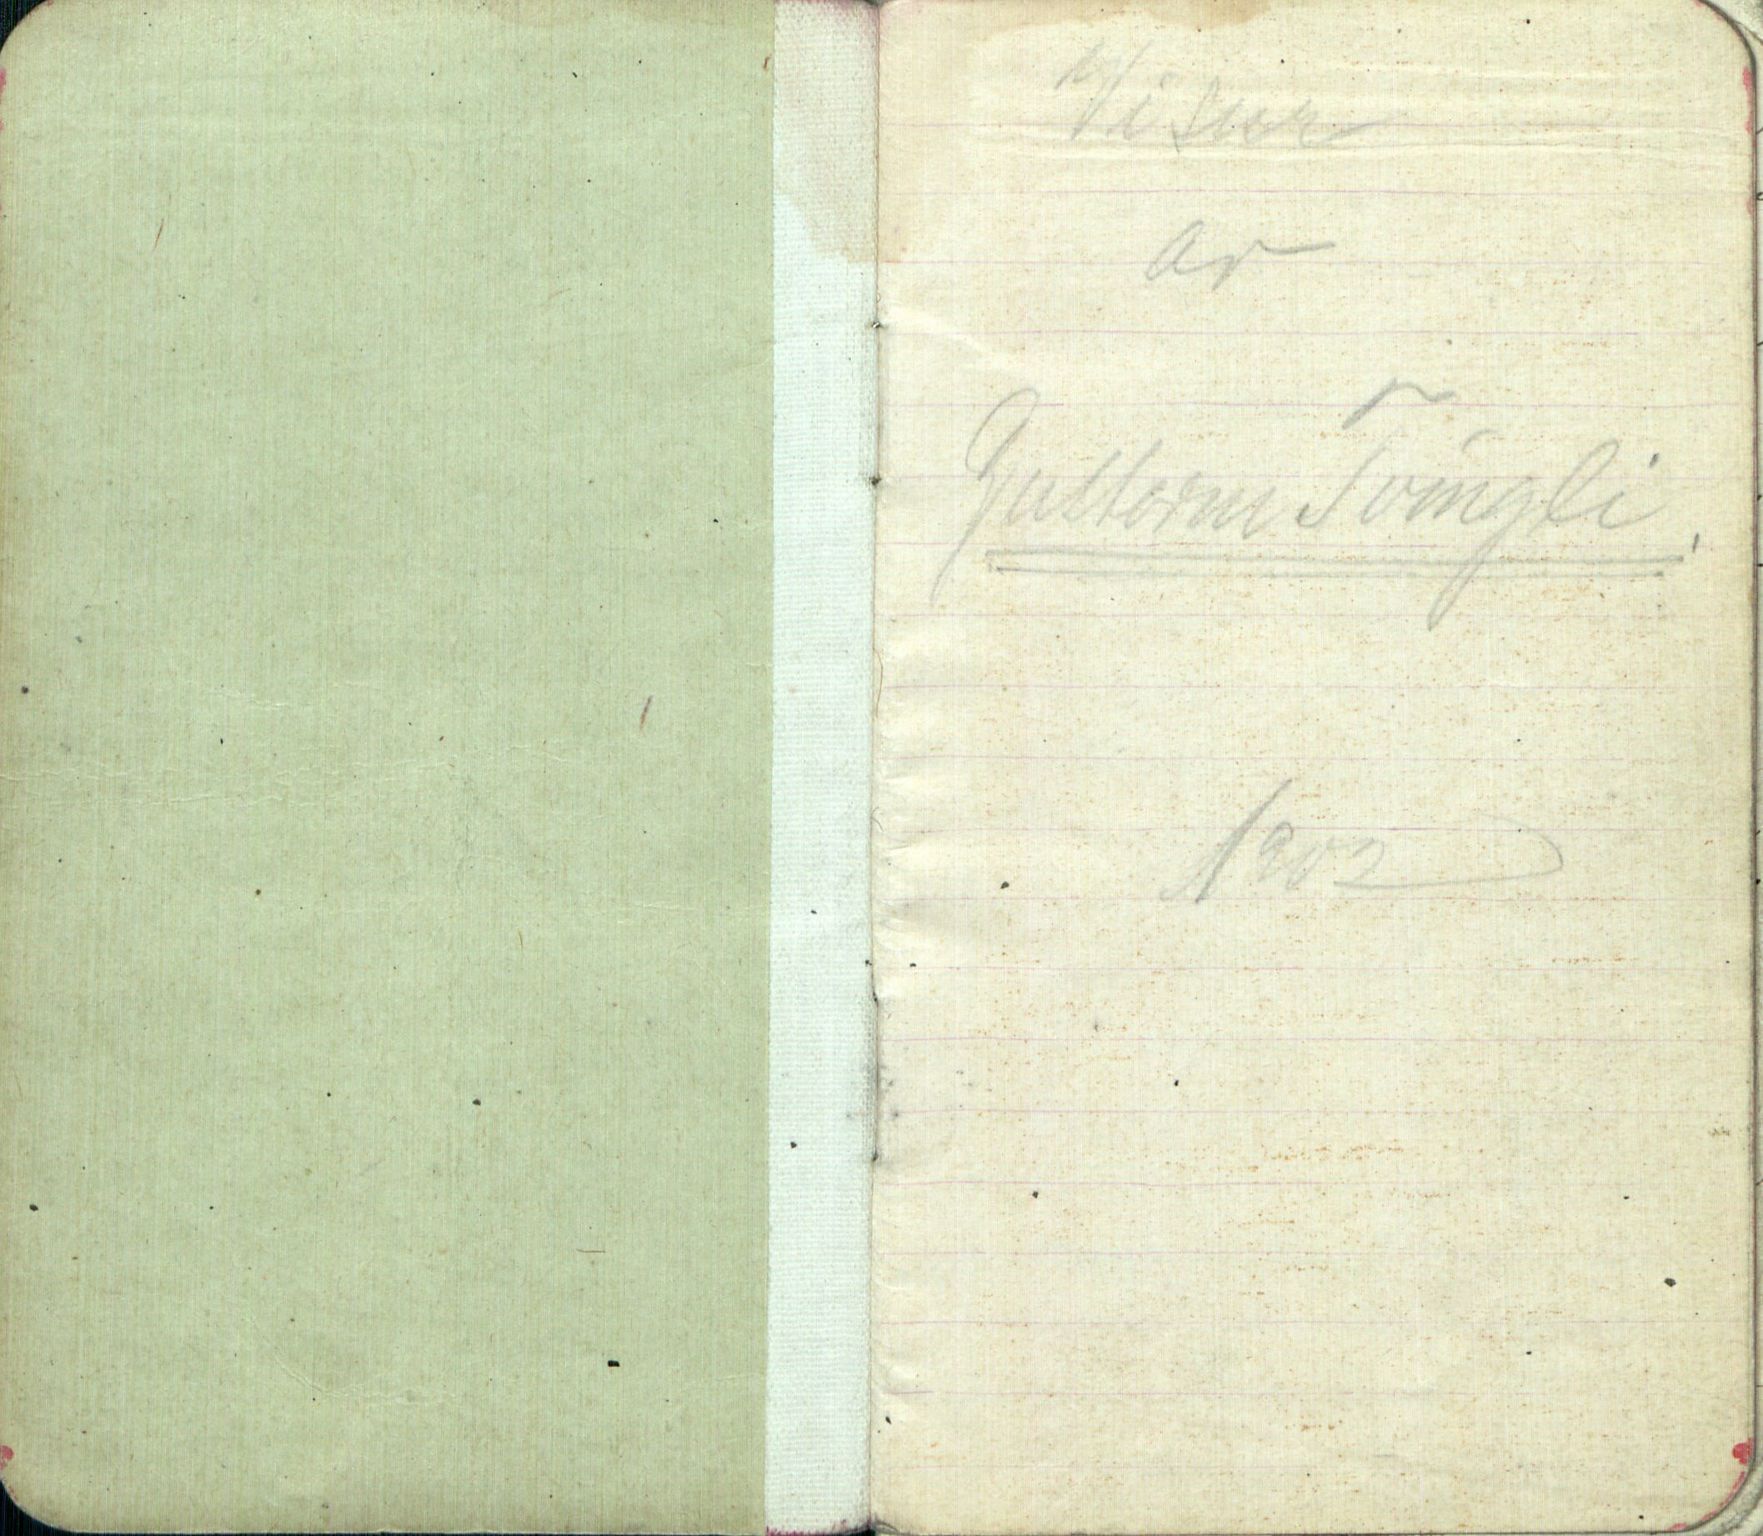 Visur
av
Guttorm Tvingli.
1903